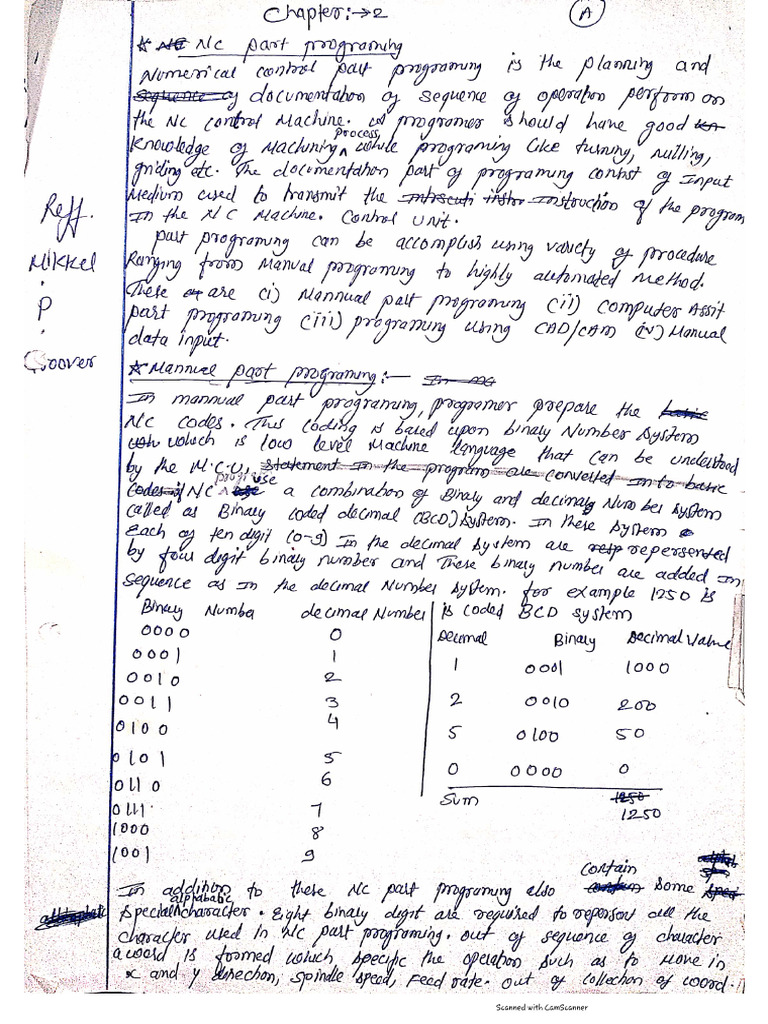 Chapter:→2
A
* NC part programing
Numerical control part programing is the planning and
documentation of sequence of operation perform on
the NC control Machine. programer should have good
knowledge of Machining process while programing like turning, milling,
griding etc. The documentation part of programing consist of Input
Medium used to transmit the Instruction of the program
In the NC Machine. Control Unit.
part programing can be accomplish using variety of procedure
Ranging from Manual programing to highly automated method.
These are (i) Mannual part programing (ii) computer Assit
part programing (iii) programing using CAD/CAM (iv) Manual
data input.
Reff.
Mikkel
.
P
.
Groover
* Mannual part programing:-
In mannual part programing, programer prepare the
NC codes. This coding is based upon binary Number System
which is low level Machine language that can be understood
by the M.C.U. statement in the program are converted in to basic
codes of NC program use a combination of Binary and decimal Number System
called as Binary coded decimal (BCD) System. In these System
Each of ten digit (0-9) In the decimal System are repersented
by four digit binary number and These binary number are added In
sequence as In the decimal Number System. for example 1250 is
is coded BCD system
Binary Number decimal Number
0000 0
0001 1
0010 2
0011 3
0100 4
0101 5
0110 6
0111 7
1000 8
1001 9
Decimal Binary Decimal Value
1 0001 1000
2 0010 200
5 0100 50
0 0000 0
Sum 1250
1250
In addition to these NC part programing also contain some
special alphabatic character. Eight binary digit are required to reperson all the
character used in NC part programing. out of sequence of character
a word is formed which specific the operation such as to Move in
x and y direction, spindle speed, Feed rate. out of collection of word.
Scanned with CamScanner